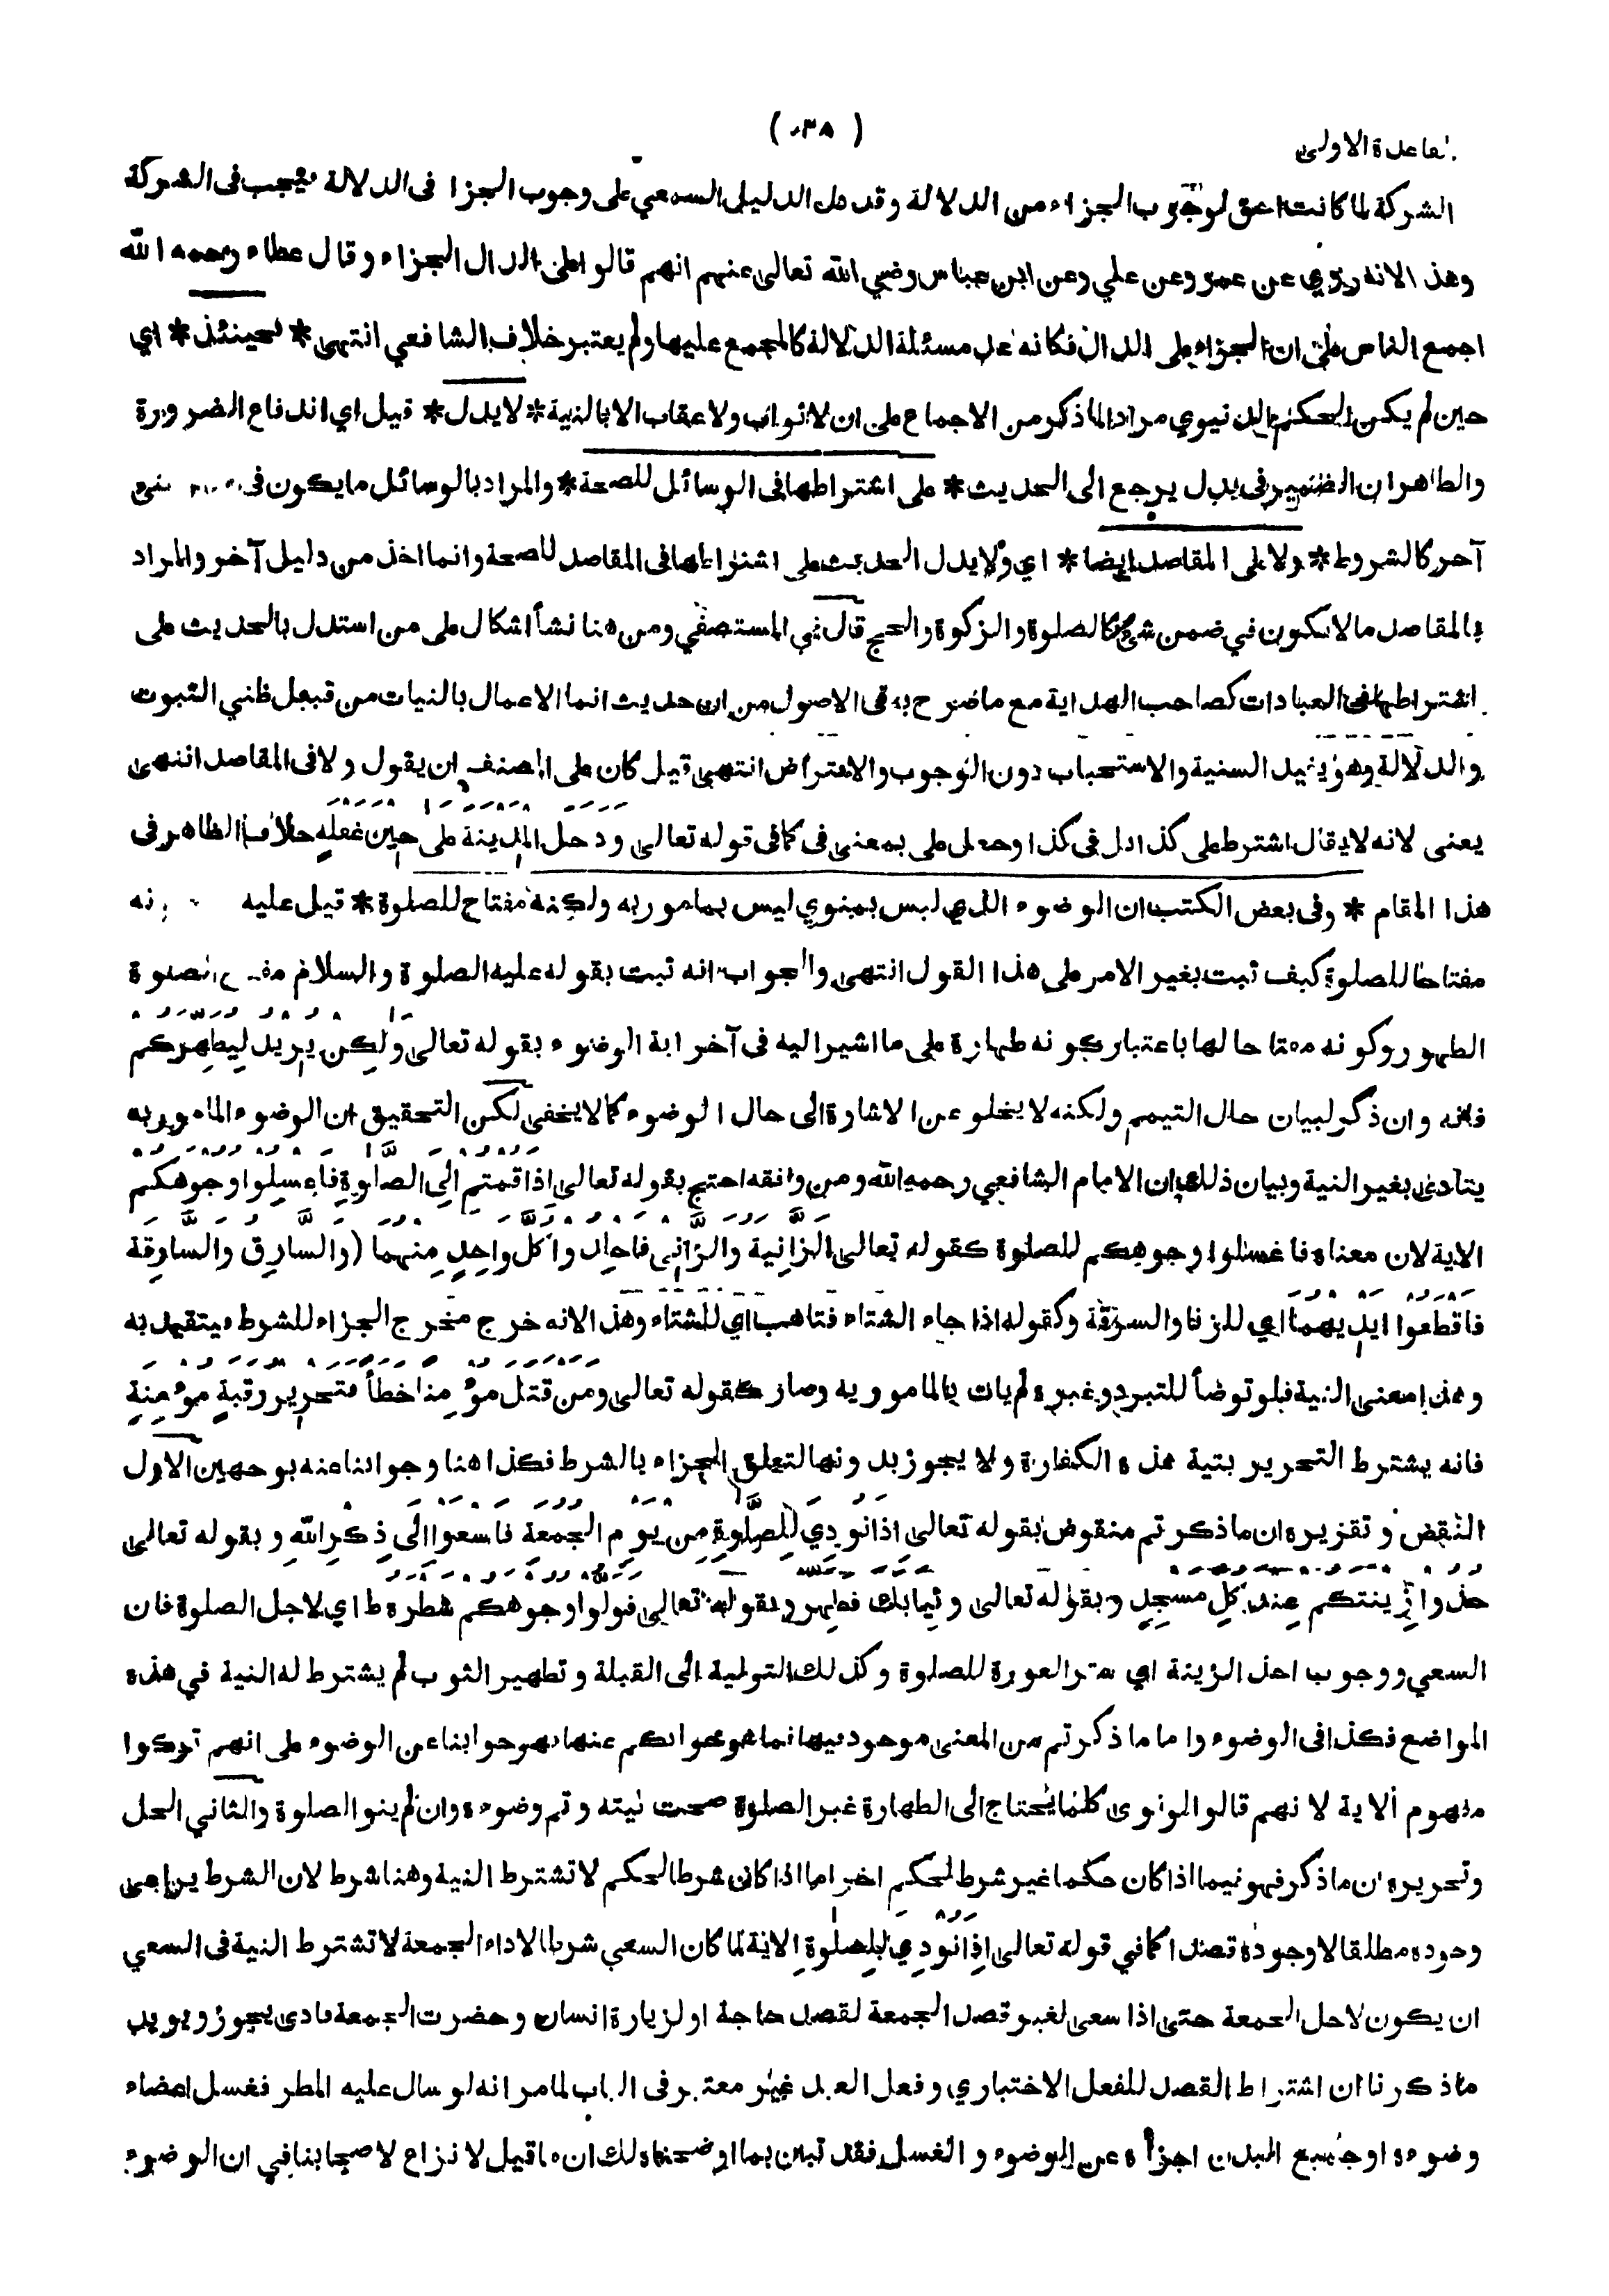 ( ٠٣٨ )
القاعدة الاولى
الشركة لما كانت احق لوجوب الجزاء من الدلالة وقد دل الدليل السمعي على وجوب الجزا فى الدلالة فيجب فى الشركة
وهذ الانه روي عن عمر وعن علي وعن ابن عباس رضي الله تعالى عنهم انهم قالوا على الدال الجزاء وقال عطاء رحمه الله
اجمع الناس على ان الجزاء على الدال فكانه عد مسئلة الدلالة كالمجمع عليها ولم يعتبر خلاف الشافعي انتهى * فحينئذ * اي
حين لم يكن الحكم الدنيوي مراد الماذكر من الاجماع على ان لا ثواب ولا عقاب الا بالنية * لا يدل * قيل اي اندفاع الضرورة
والظاهر ان الضمير فى يدل يرجع الى الحديث * على اشتراطها فى الوسائل للصحة * والمراد بالوسائل ما يكون فى ضمن شئ
آخر كالشروط * ولا على المقاصد ايضا * اي ولا يدل الحديث على اشتراطها فى المقاصد للصحة وانما اخذ من دليل آخر والمراد
بالمقاصد ما لا يكون في ضمن شئ كالصلوة والزكوة والحج قال في المستصفي ومن هنا نشأ اشكال على من استدل بالحديث على
اشتراطها فى العبادات كصاحب الهداية مع ما صرح به فى الاصول من ان حديث انما الاعمال بالنيات من قبيل ظني الثبوت
والدلالة وهو يفيد السنية والاستحباب دون الوجوب والافتراض انتهى قيل كان على المصنف ان يقول ولا فى المقاصد انتهى
يعنى لانه لا يقال اشترط على كذا بل فى كذا وجعل على بمعنى فى كما فى قوله تعالى ودخل المدينة على حين غفلة خلاف الظاهر فى
هذا المقام * وفى بعض الكتب ان الوضوء الذي ليس بمنوي ليس بمامور به ولكنه مفتاح للصلوة * قيل عليه نه
مفتاحا للصلوة كيف ثبت بغير الامر على هذا القول انتهى والجواب انه ثبت بقوله عليه الصلوة والسلام مفتاح الصلوة
الطهور وكونه مفتاحا لها باعتبار كونه طهارة على ما اشير اليه فى آخر اية الوضوء بقوله تعالى وَلٰكِن يُرِيدُ لِيُطَهِّرَكُم
فانه وان ذكر لبيان حال التيمم ولكنه لا يخلو عن الاشارة الى حال الوضوء كما لا يخفى لكن التحقيق ان الوضوء المامور به
يتادى بغير النية وبيان ذلك ان الامام الشافعي رحمه الله ومن وافقه احتج بقوله تعالى اِذَا قُمْتُم اِلَى الصَّلٰوةِ فَاغْسِلُوا وُجُوهَكُم
الاية لان معناه فاغسلوا وجوهكم للصلوة كقوله تعالى اَلزَّانِيَةُ وَالزَّانِي فَاجْلِدُوا كُلَّ وَاحِدٍ مِنْهُمَا (وَالسَّارِقُ وَالسَّارِقَةُ
فَاقْطَعُوا اَيْدِيَهُمَا اي للزنا والسرقة وكقوله اذا جاء الشتاء فتاهب اي للشتاء وهذ الانه خرج مخرج الجزاء للشرط فيتقيد به
وهذا معنى النية فلو توضأ للتبرد وغيره لم يات بالمامور به وصار كقوله تعالى وَمَن قَتَلَ مُؤْمِنًا خَطَأً فَتَحْرِيرُ رَقَبَةٍ مُؤْمِنَةٍ
فانه يشترط التحرير بنية هذه الكفارة ولا يجوز بدونها لتعلق الجزاء بالشرط فكذا هنا وجوابنا عنه بوجهين الاول
النقض وتقريره ان ما ذكرتم منقوض بقوله تعالى اِذَا نُودِيَ لِلصَّلٰوةِ مِن يَوْمِ الْجُمُعَةِ فَاسْعَوا اِلٰى ذِكْرِ اللهِ وبقوله تعالى
خُذُوا زِينَتَكُم عِندَ كُلِّ مَسْجِدٍ وبقوله تعالى وَثِيَابَكَ فَطَهِّر وبقوله تعالى فَوَلُّوا وُجُوهَكُم شَطْرَهُ ط اي لاجل الصلوة فان
السعي ووجوب اخذ الزينة اي ستر العورة للصلوة وكذلك التولية الى القبلة وتطهير الثوب لم يشترط له النية في هذه
المواضع فكذا فى الوضوء واما ما ذكرتم من المعنى موجود فيها فما هو جوابكم عنها فهو جوابنا عن الوضوء على انهم تركوا
مفهوم الاية لانهم قالوا لو نوى كلما يحتاج الى الطهارة غير الصلوة صحت نيته وتم وضوءه وان لم ينو الصلوة والثاني الحل
وتحريره ان ما ذكر فهو فيما اذا كان حكما غير شرط لحكم اخر اما اذا كان شرطا لحكم لا تشترط النية وهنا شرط لان الشرط يراعى
وجوده مطلقا لا وجوده قصدا كما في قوله تعالى اِذَا نُودِيَ لِلصَّلٰوةِ الاية لما كان السعي شرطا لاداء الجمعة لا تشترط النية فى السعي
ان يكون لاجل الجمعة حتى اذا سعى لغير قصد الجمعة لقصد حاجة او لزيارة انسان وحضرت الجمعة فادى يجوز ويويد
ما ذكرنا ان اشتراط القصد للفعل الاختياري وفعل العبد غير معتبر فى الباب لما مر انه لو سال عليه المطر فغسل اعضاء
وضوءه او جميع البدن اجزأه عن الوضوء والغسل فقد تبين بما اوضحناه لك ان ما قيل لا نزاع لاصحابنا في ان الوضوء